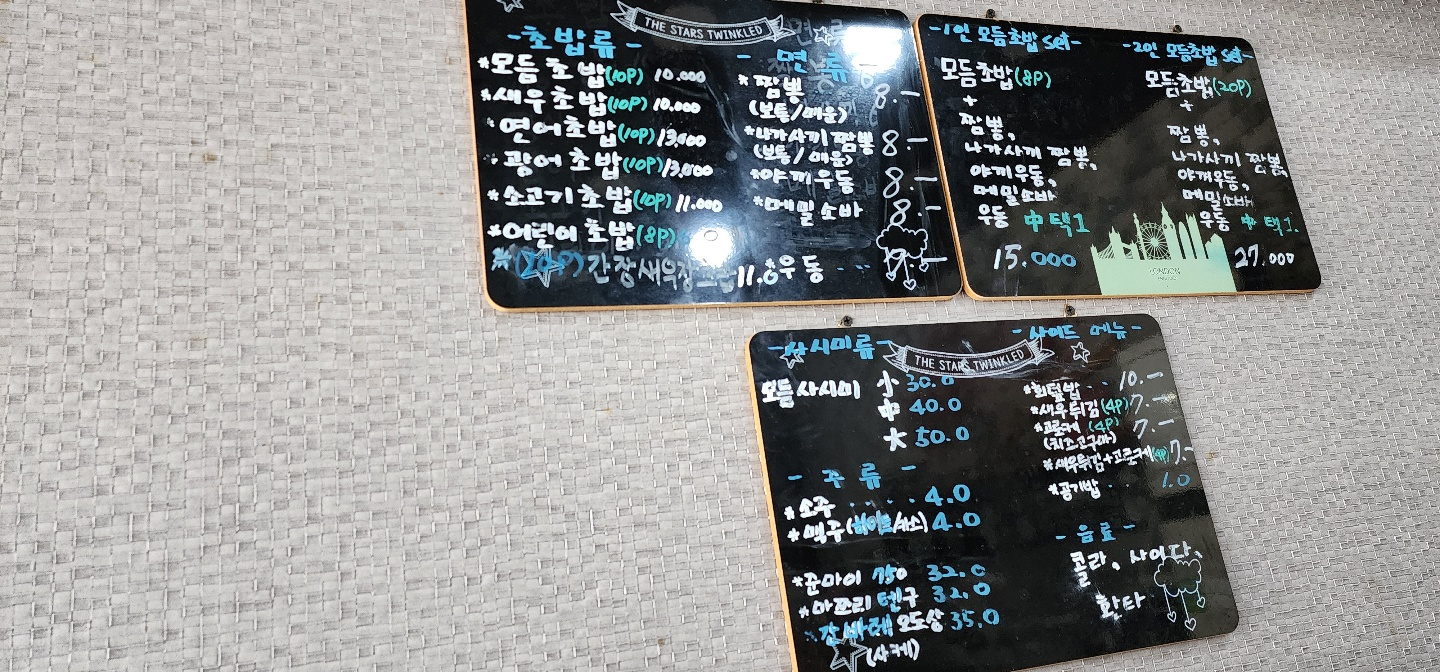 THE STARS TWINKLED
-초밥류-
*모듬초밥(10P) 10.000
*새우초밥(10P) 10.000
*연어초밥(10P) 13,000
*광어초밥(10P) 13,000
*소고기초밥(10P) 11.000
*어린이초밥(8P)
*(20P) 간장새우장초밥 11.0
- 면류 -
*짬뽕 8.-
(보통/매운)
*나가사끼짬뽕 8.-
(보통/매운)
*야끼우동 8.-
*메밀소바 8.-
*우동 ... 7.-
-1인 모듬초밥 set-
모듬초밥(8P)
+
짬뽕,
나가사끼 짬뽕,
야끼우동,
메밀소바
우동 中 택1
15.000
-2인 모듬초밥 set-
모듬초밥(20P)
+
짬뽕,
나가사끼 짬뽕,
야끼우동,
메밀소바
우동 中 택1.
27.000
LONDON
-사시미류-
THE STARS TWINKLED
모듬사시미 小 30.0
中 40.0
大 50.0
- 주류 -
*소주 .... 4.0
*맥주(하이트/카스) 4.0
*준마이 750 32.0
*마쯔리 텐구 32.0
*간바레 오도상 35.0
(사케)
-사이드 메뉴-
*회덮밥 .. 10.-
*새우튀김(4P) 7.-
*고로케 (4P) 7.-
(치즈고구마)
*새우튀김+고로케(4P) 7.-
*공기밥 .. 1.0
-음료-
콜라, 사이다,
환타